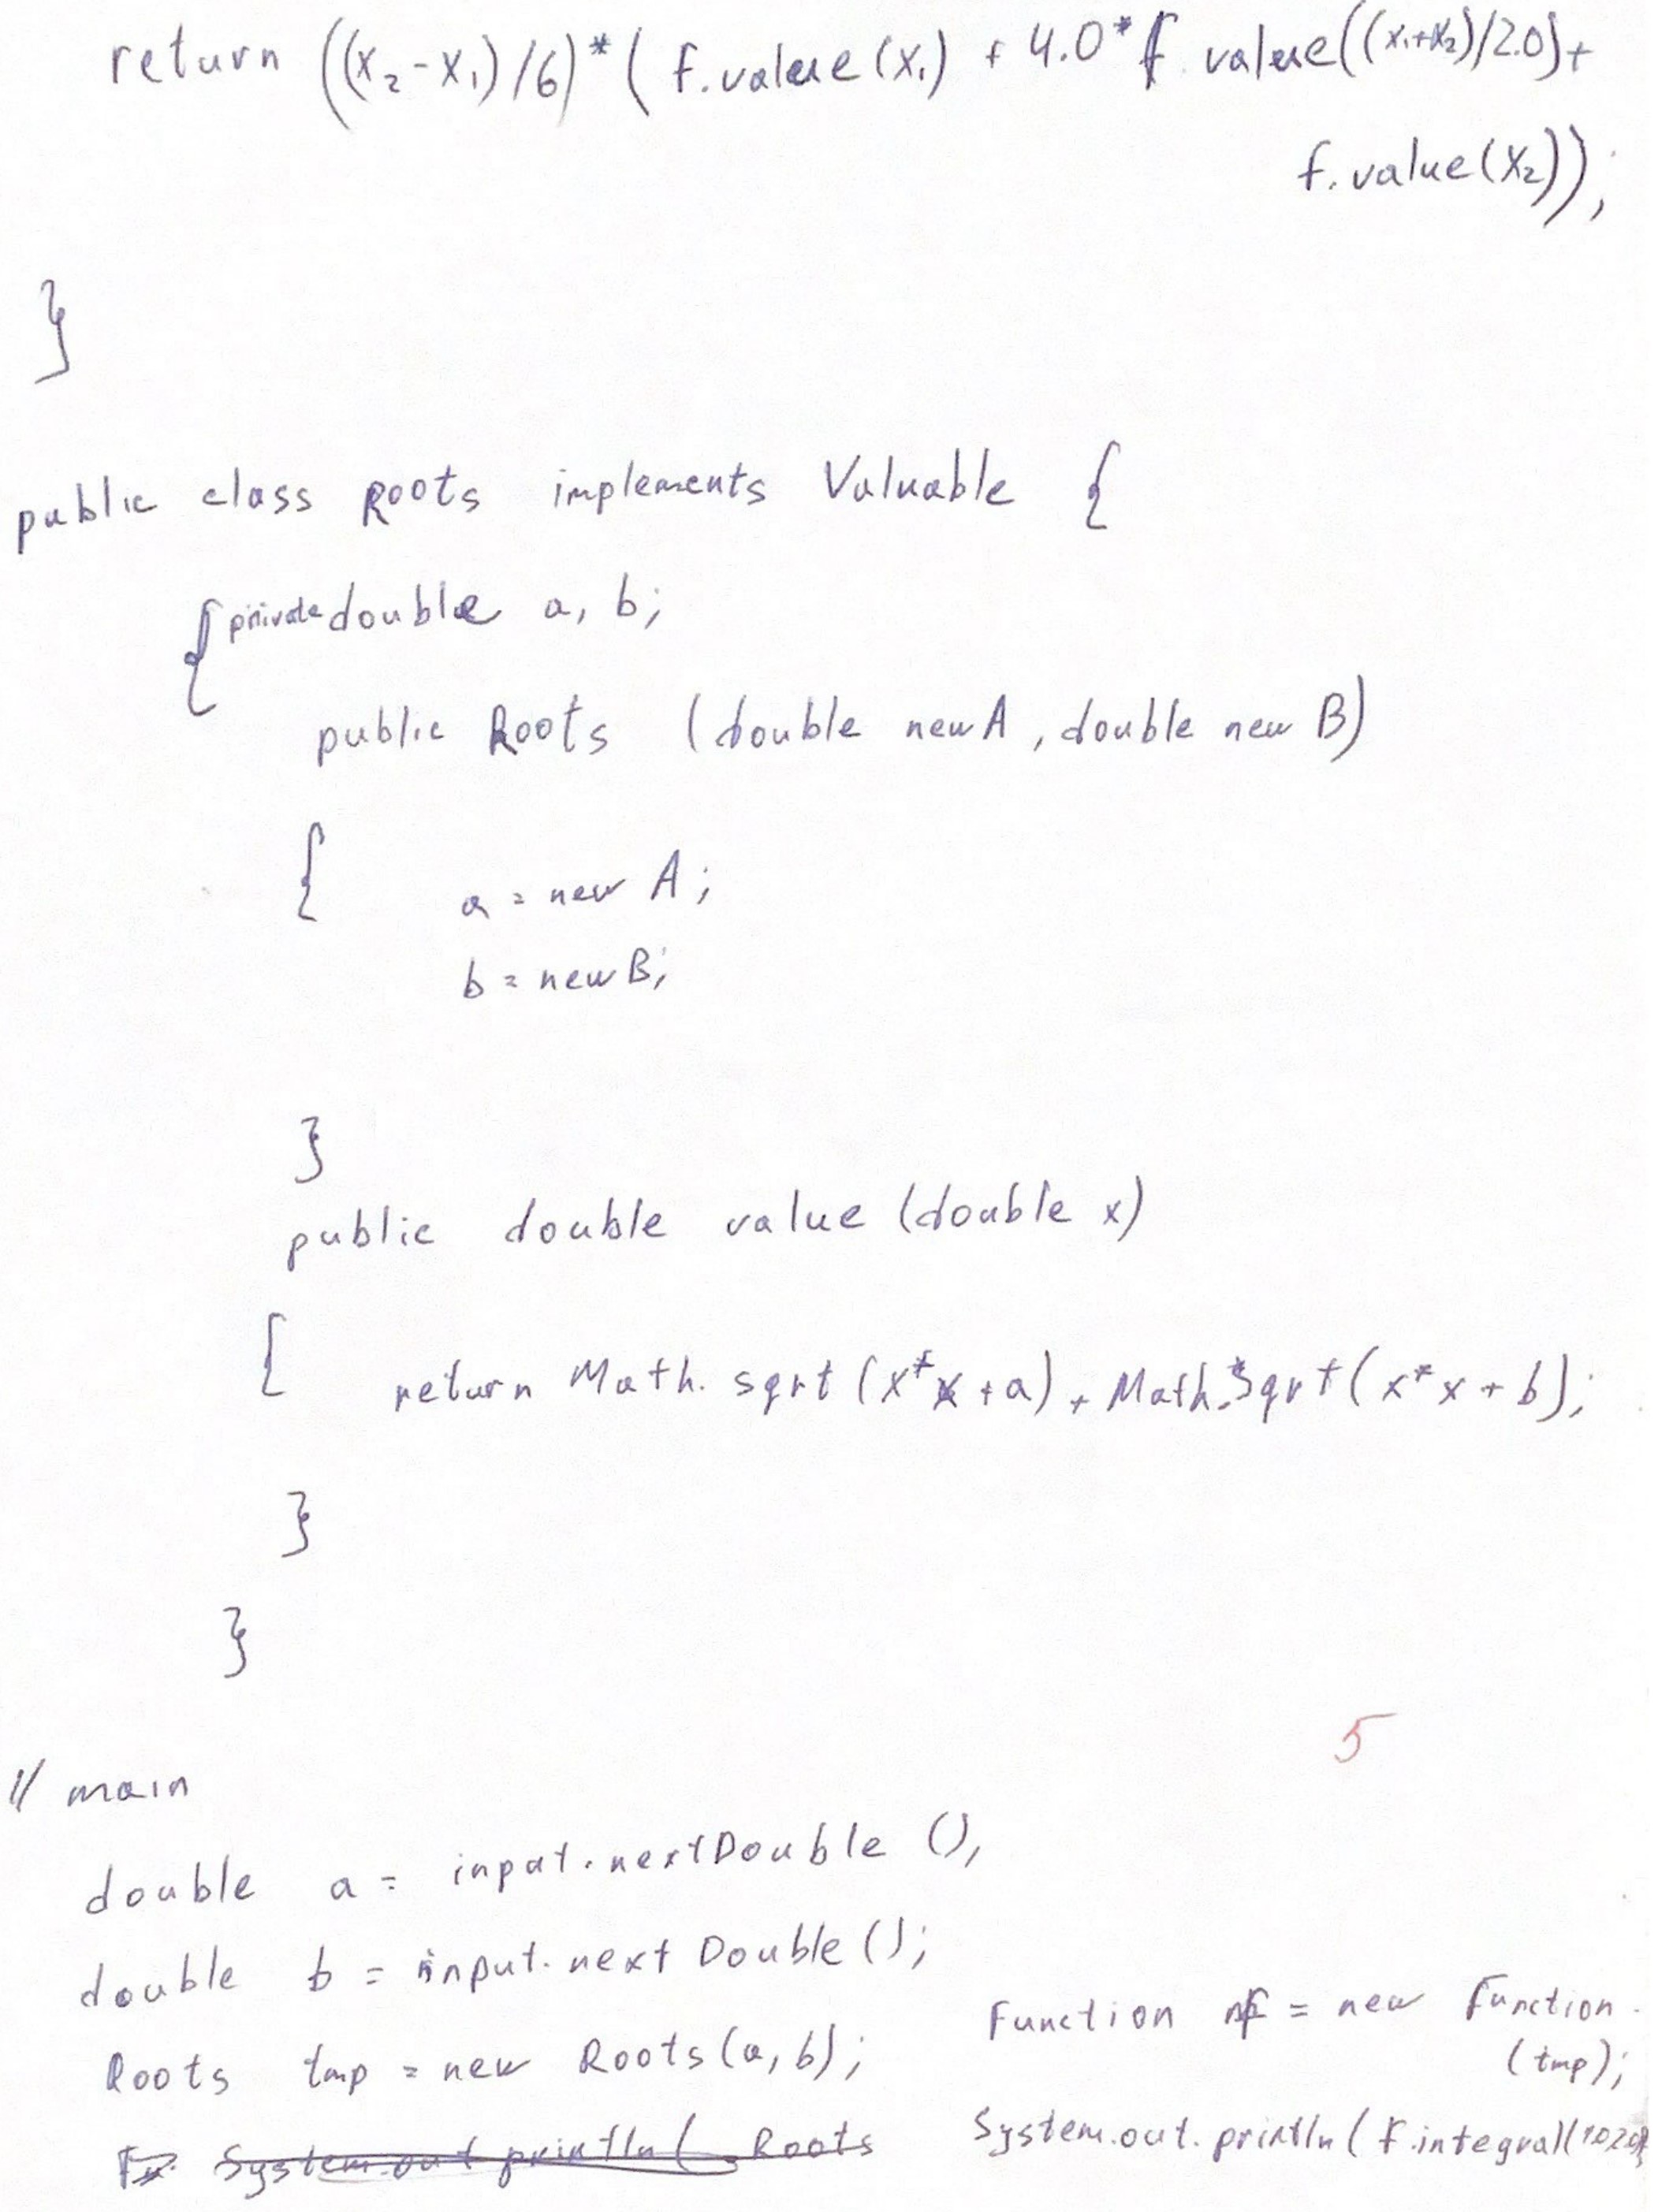 return ((x₂-x₁)/6)*(f.value(x₁) + 4.0*f.value((x₁+x₂)/2.0)+
f.value(x₂));
}
public class Roots implements Valuable {
{ private double a, b;
public Roots (double newA, double new B)
{ a = new A;
b = newB;
}
public double value (double x)
{ return Math.sqrt (x*x+a) + Math.sqrt(x*x+b);
}
}
5
// main
double a = input.nextDouble (),
double b = input.next Double();
Roots tmp = new Roots(a, b);
System.out println( Roots
Function f = new Function
(tmp);
System.out.println(f.integral(